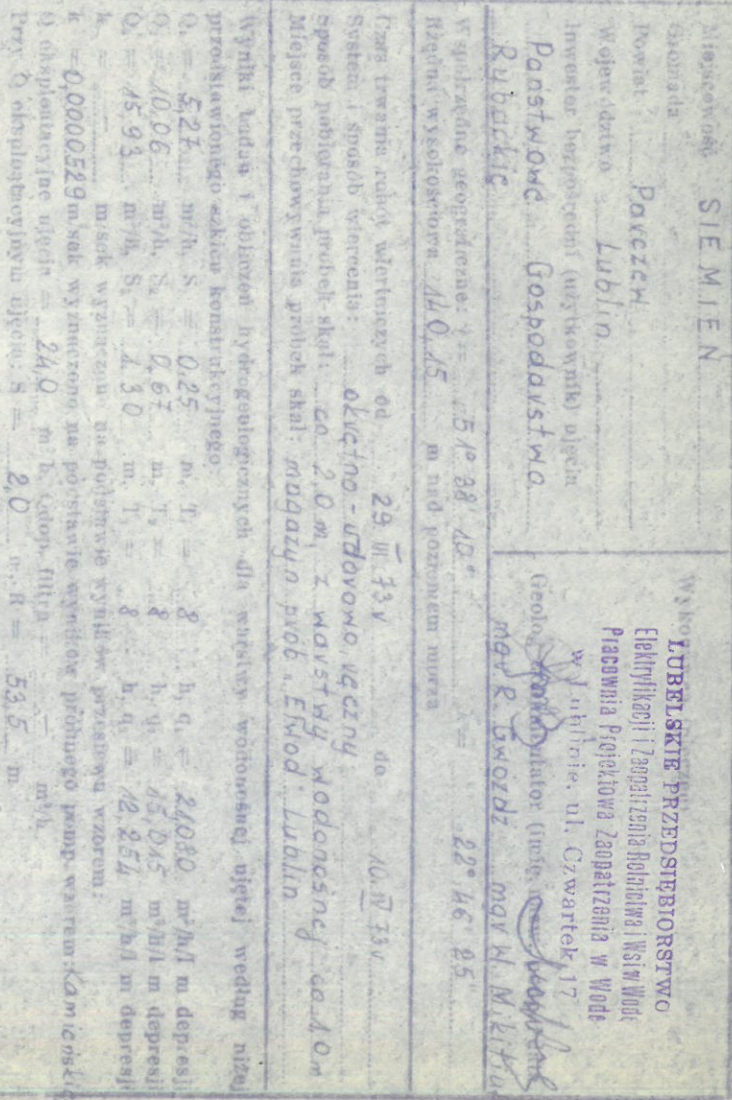 Miejscowość SIEMIEN
Gromada
Powiat Parczew
Województwo Lublin
Inwestor bezpośredni (użytkownik) ujęcia
Państwowe Gospodarstwo
Rybackie
LUBELSKIE PRZEDSIĘBIORSTWO
Elektryfikacji i Zaopatrzenia Rolnictwa i Wsi w Wodę
Pracownia Projektowa Zaopatrzenia w Wodę
w Lublinie, ul. Czwartek 17
Geolog
mgr R. Gwozdz mgr W. Mikitiu
Współrzędne geograficzne: 51° 38' 10" 22° 46 25
Rzędna wysokościowa 140,15 m nad poziomem morza
Czas trwania robót wiertniczych od 29 III 73 r do 10. IV 73 r
System i sposób wiercenia: okrętno-udarowo ręczny
Sposób pobierania próbek skał: co 2,0 m, z warstwy wodonośnej co 1,0 m
Miejsce przechowywania próbek skał: magazyn prób „Elwod" Lublin
Wyniki badań i obliczeń hydrogeologicznych dla warstwy wodonośnej ujętej według niżej
przedstawionego szkicu konstrukcyjnego
Q₁ = 5,27 m³/h, S = 0.25 m, T = 8 h, q₁ = 21080 m³/h/1 m depresji
Q₂ = 10,06 m³/h, S₂ = 0,67 m, T₂ = 8 h, q₂ = 15,015 m³/h/1 m depresji
Q₃ = 15,93 m³/h, S₃ = 1.30 m, T₃ = 8 h, q₃ = 12,254 m³/h/1 m depresji
k = m/sek wyznaczon na podstawie wyników przesiewu wzorem:
k = 0,0000529 m/sek wyznaczono na podstawie wyników próbnego pomp. wzorem: Kamieński
Q eksploatacyjne ujęcia = 24,0 m³/h, Q dop. filtra = — m³/h
Przy Q eksploatacyjnym ujęcia: S = 2,0 m, R = 53,5 m